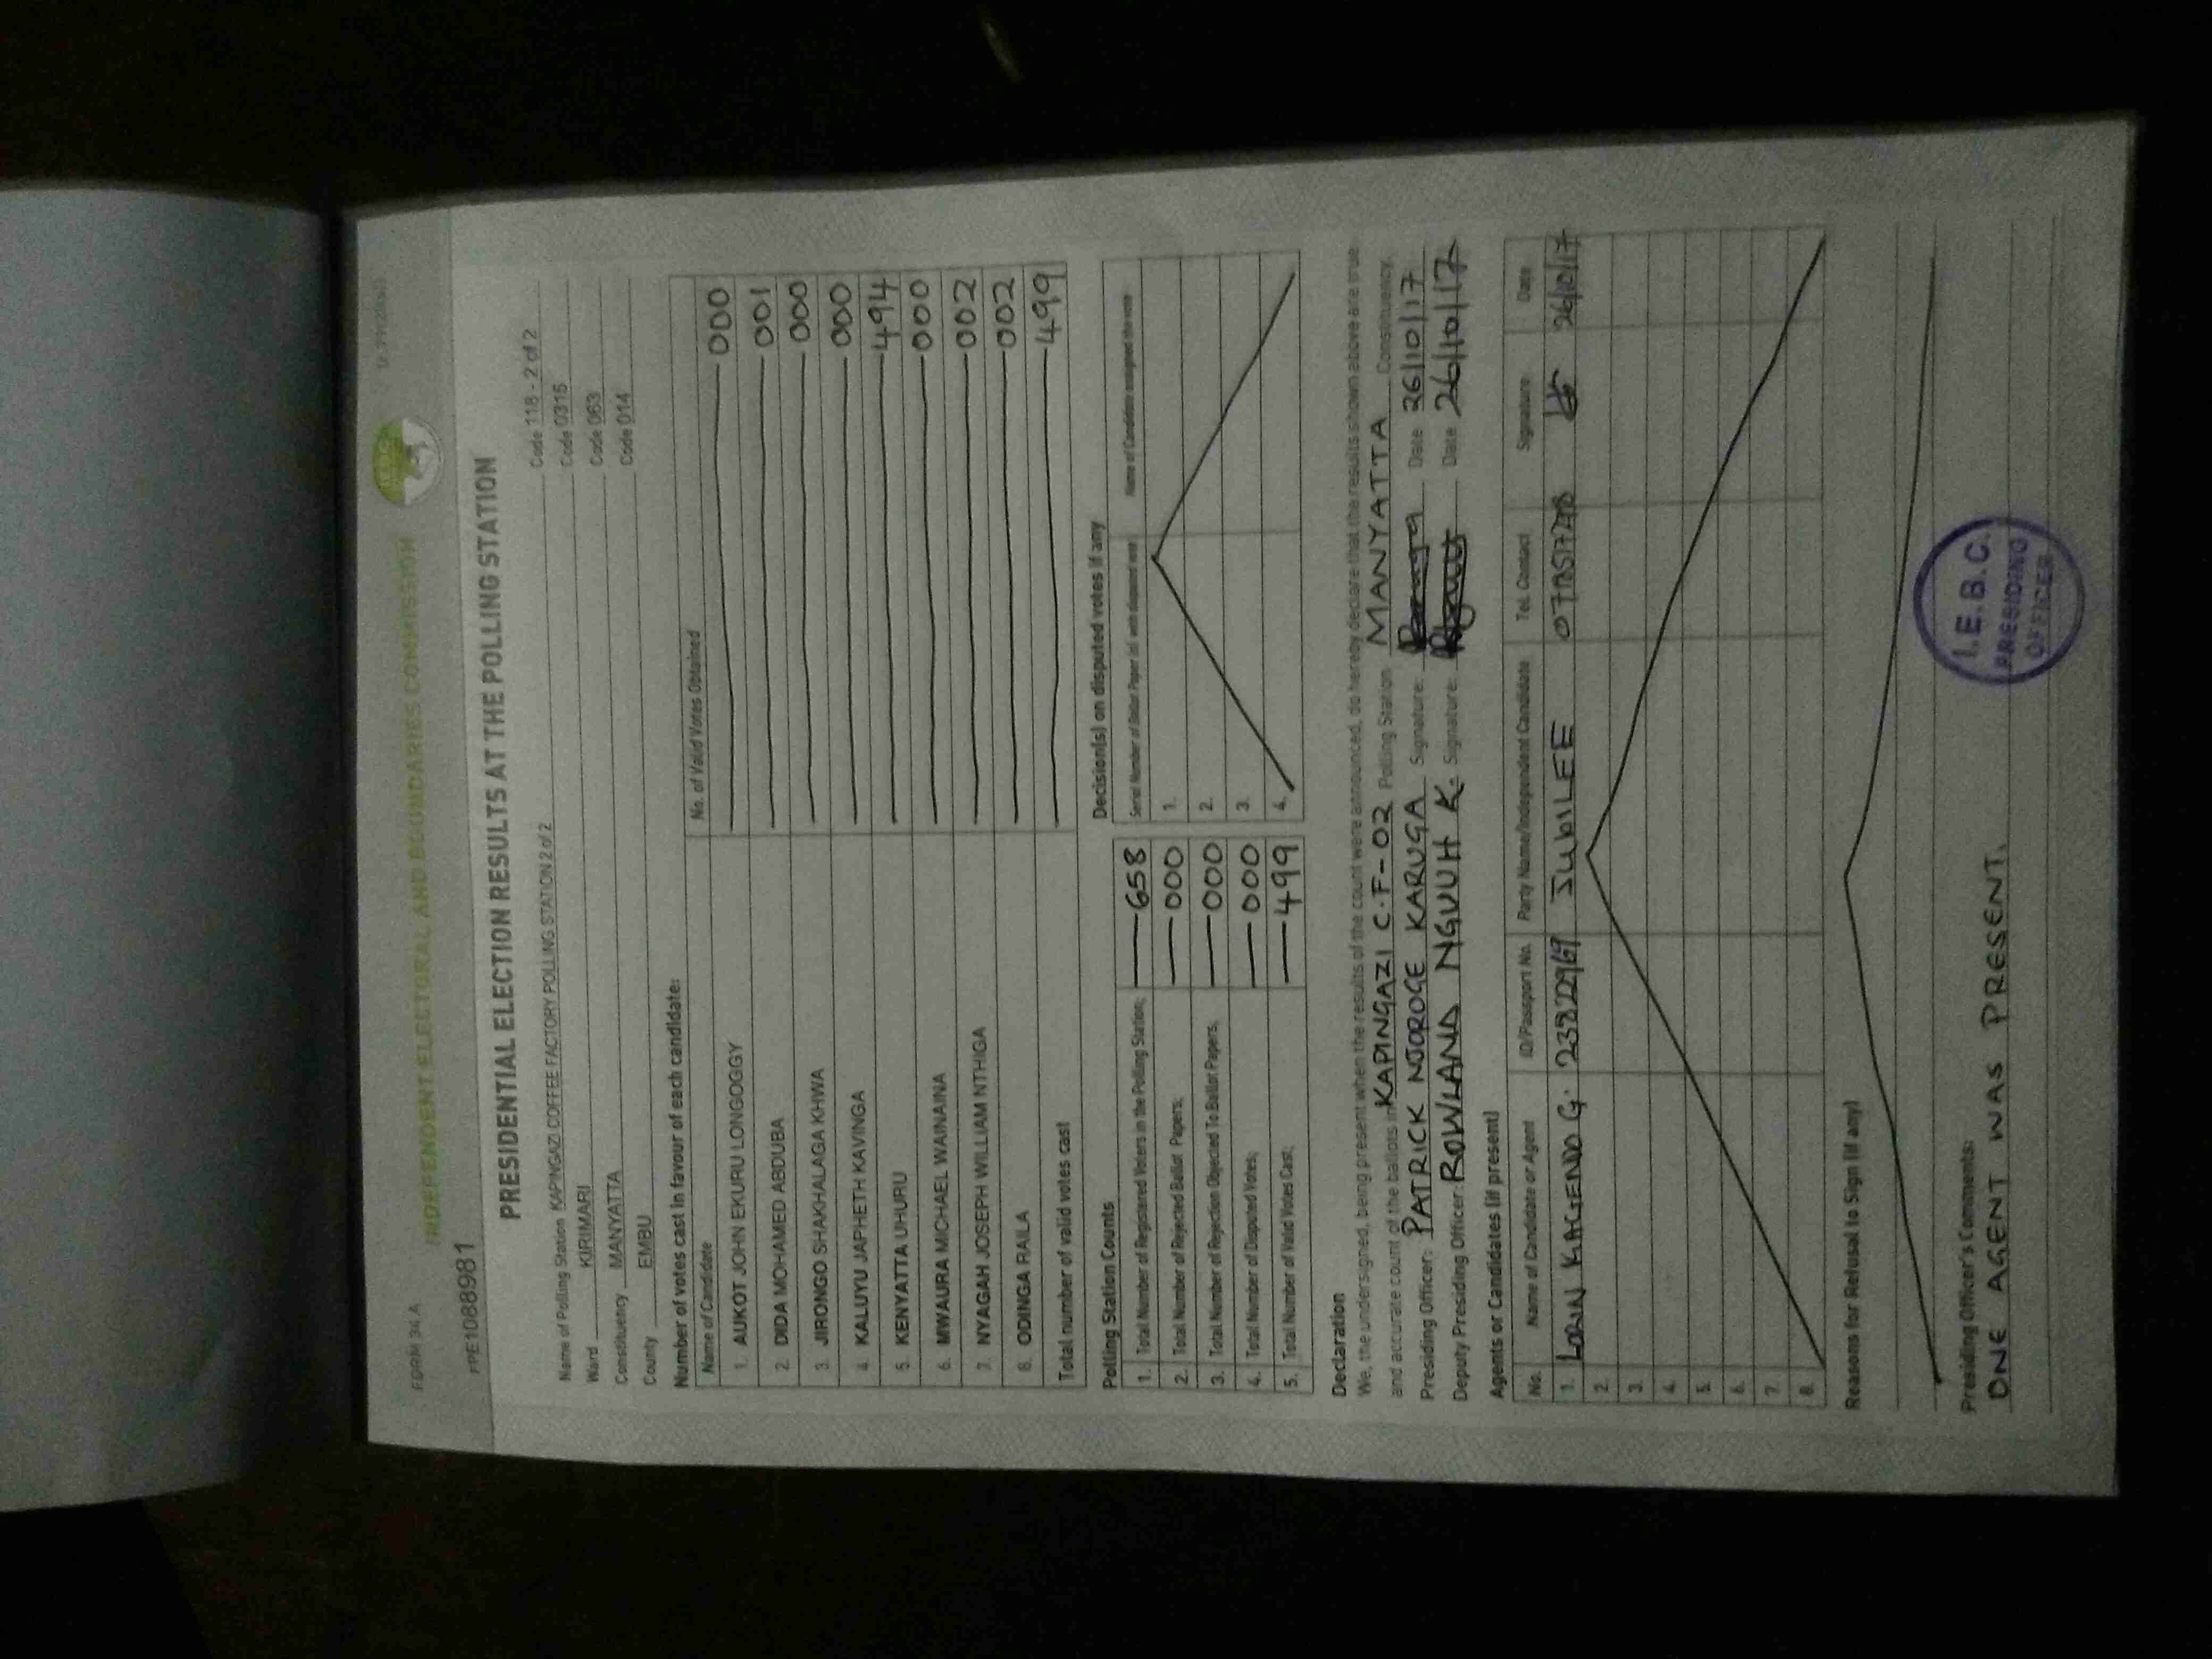 FORM 34 A
INDEPENDENT ELECTORAL AND BOUNDARIES COMMISSION
FPE1088981
PRESIDENTIAL ELECTION RESULTS AT THE POLLING STATION
Name of Polling Station KAPINGAZI COFFEE FACTORY POLLING STATION 2 of 2 Code 118 - 2 of 2
Ward KIRIMARI Code 0315
Constituency MANYATTA Code 063
County EMBU Code 014
Number of votes cast in favour of each candidate:
Name of Candidate No. of Valid Votes Obtained
1. AUKOT JOHN EKURU LONGOGGY 000
2. DIDA MOHAMED ABDUBA 001
3. JIRONGO SHAKHALAGA KHWA 000
4. KALUYU JAPHETH KAVINGA 000
5. KENYATTA UHURU 494
6. MWAURA MICHAEL WAINAINA 000
7. NYAGAH JOSEPH WILLIAM NTHIGA 002
8. ODINGA RAILA 002
Total number of valid votes cast 499
Polling Station Counts
1. Total Number of Registered Voters in the Polling Station; 658
2. Total Number of Rejected Ballot Papers; 000
3. Total Number of Rejection Objected To Ballot Papers; 000
4. Total Number of Disputed Votes; 000
5. Total Number of Valid Votes Cast; 499
Decision(s) on disputed votes if any
Serial Number of Ballot Paper (s) with disputed vote Name of Candidate assigned the vote
1.
2.
3.
4.
Declaration
We, the undersigned, being present when the results of the count were announced, do hereby declare that the results shown above are true
and accurate count of the ballots in KAPINGAZI C.F-02 Polling Station MANYATTA Constituency.
Presiding Officer: PATRICK NJOROGE KARUGA Signature: Date 26/10/17
Deputy Presiding Officer: ROWLAND NGUUH K. Signature: Date 26/10/17
Agents or Candidates (if present)
No. Name of Candidate or Agent ID/Passport No. Party Name/Independent Candidate Tel. Contact Signature Date
1. KAGENDO G. JUBILEE 26/10/17
2.
3.
4.
5.
6.
7.
8.
Reasons for Refusal to Sign (if any)
Presiding Officer's Comments:
ONE AGENT WAS PRESENT.
I.E.B.C.
PRESIDING
OFFICER